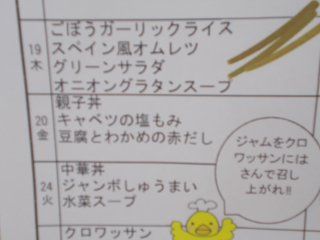 ごぼうガーリックライス
19
木
スペイン風オムレツ
グリーンサラダ
オニオングラタンスープ
親子丼
20
金
キャベツの塩もみ
豆腐とわかめの赤だし
中華丼
24
火
ジャンボしゅうまい
水菜スープ
クロワッサン
ジャムをクロ
ワッサンには
さんで召し
上がれ!!